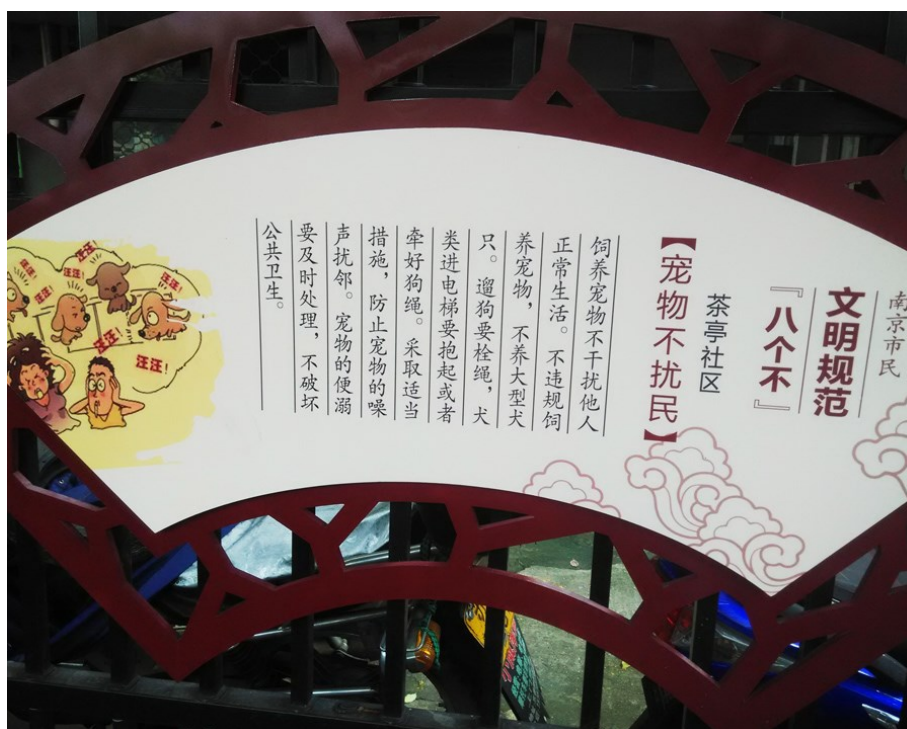 南京市民
文明规范
『八个不』
茶亭社区
【宠物不扰民】
饲养宠物不干扰他人
正常生活。不违规饲
养宠物，不养大型犬
只。遛狗要栓绳，犬
类进电梯要抱起或者
牵好狗绳。采取适当
措施，防止宠物的噪
声扰邻。宠物的便溺
要及时处理，不破坏
公共卫生。
汪汪！
汪汪！
汪汪！
汪汪！
汪汪！
汪汪！
汪汪！